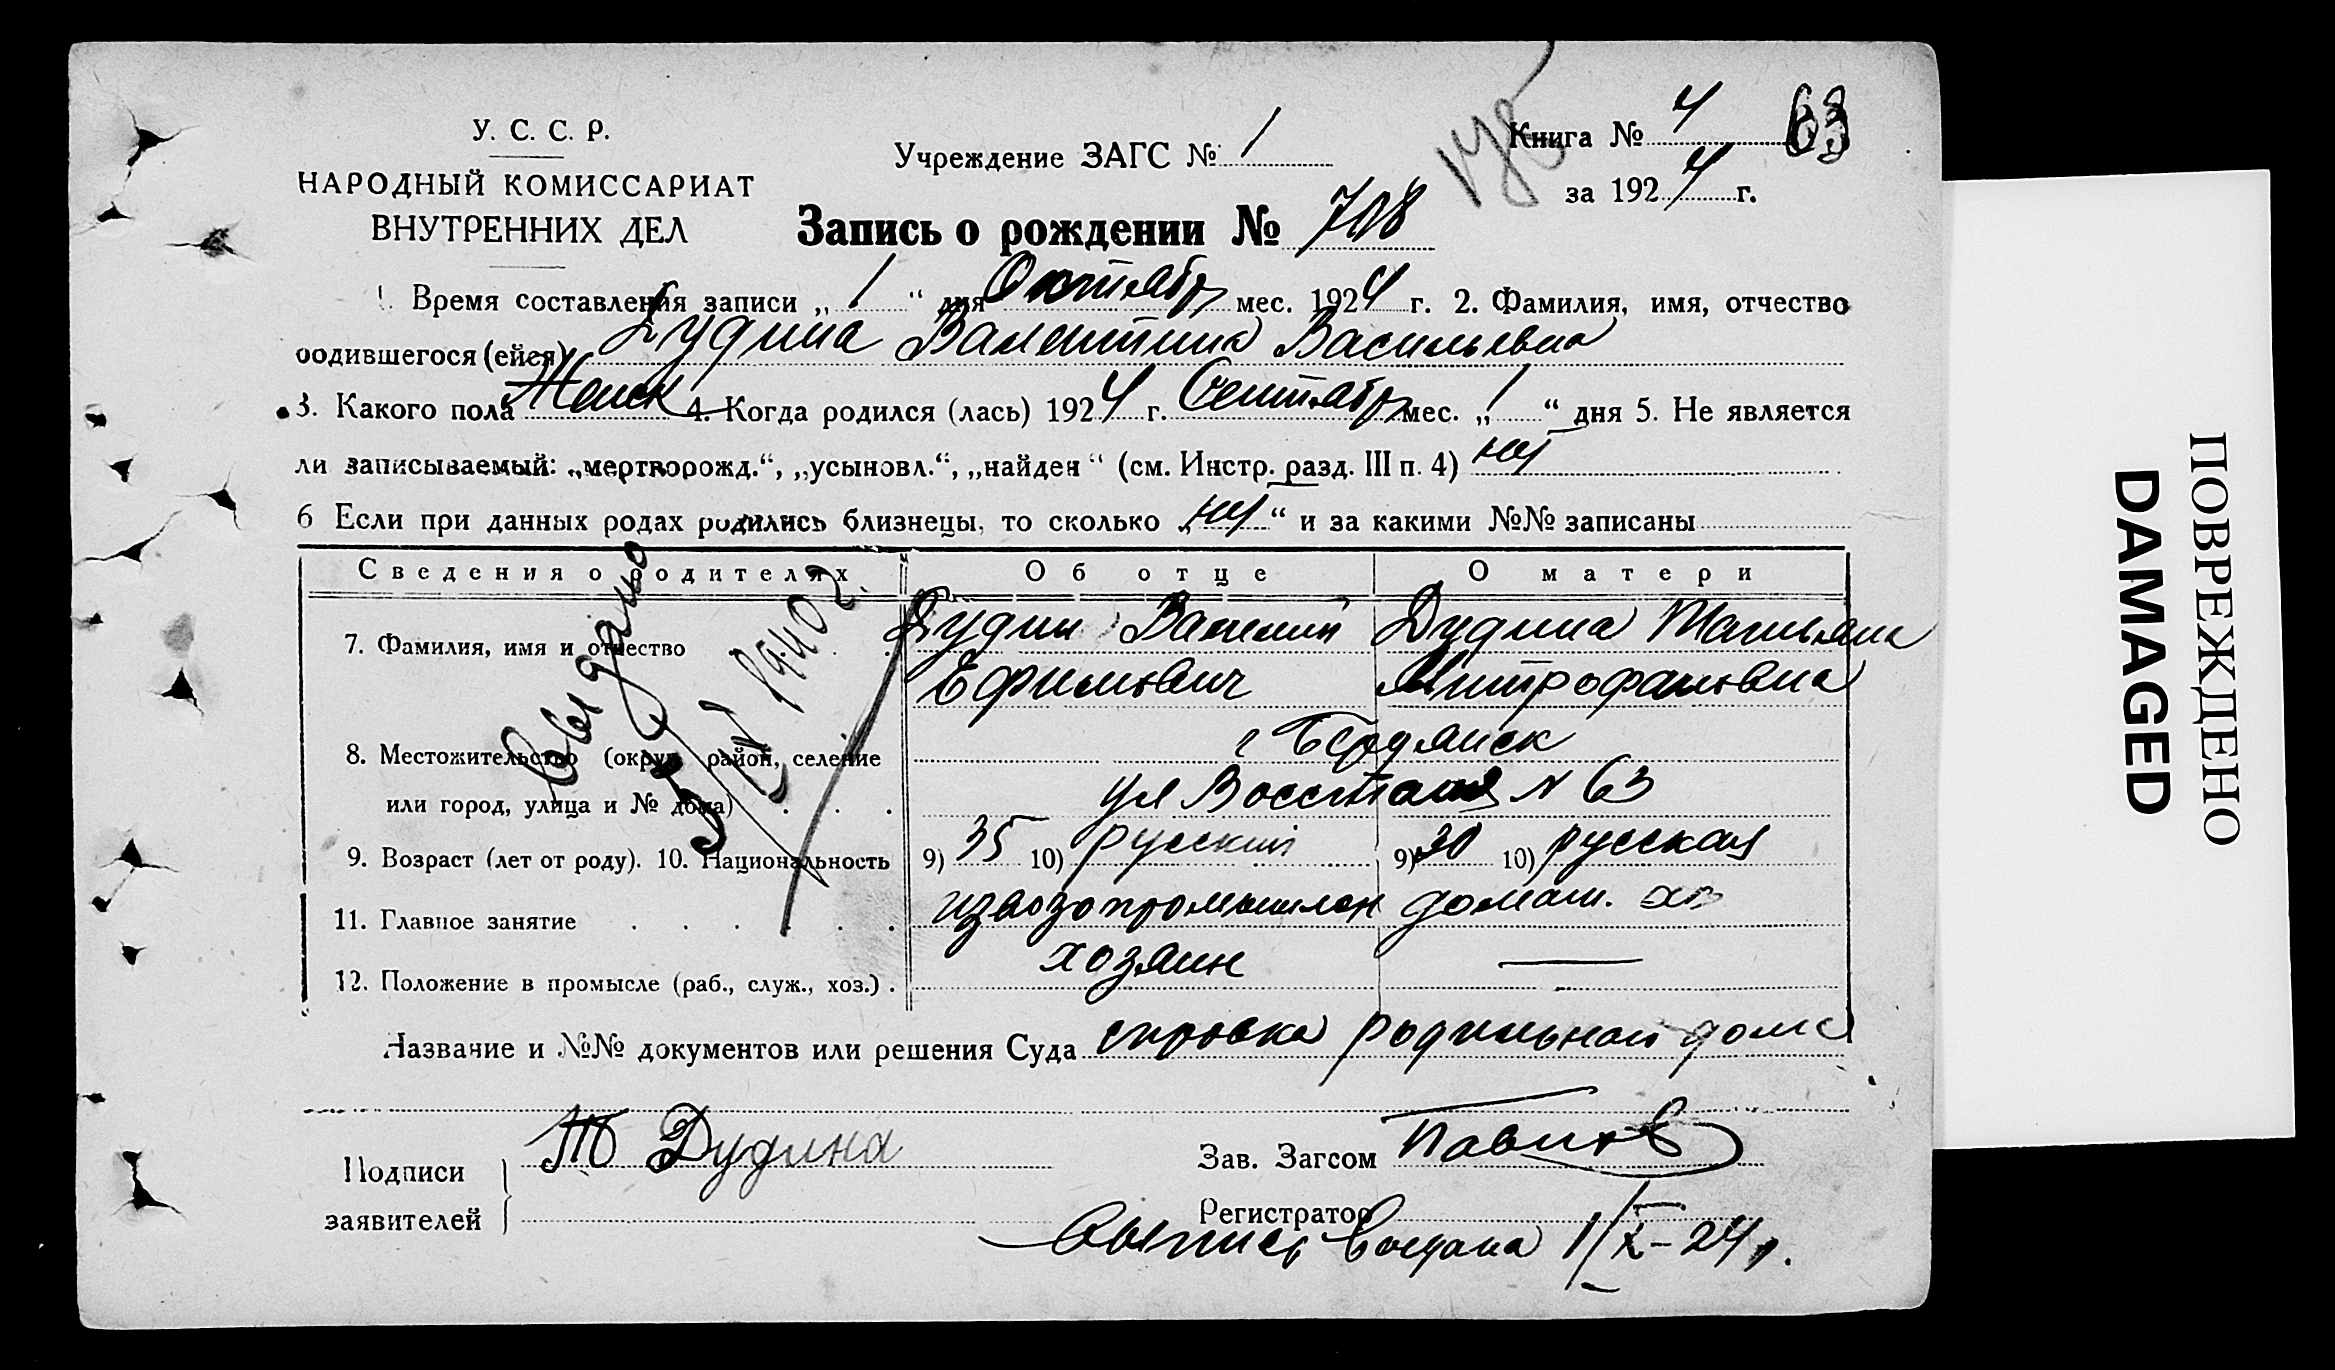 У. С. С. Р.
НАРОДНЫЙ КОМИССАРИАТ
ВНУТРЕННИХ ДЕЛ
Учреждение ЗАГС № 1
Книга № 4
63
за 1924 г.
Запись о рождении № 708
1. Время составления записи „ 1 “ дня Октябр мес. 1924 г. 2. Фамилия, имя, отчество
родившегося (ейся) Дудина Валентина Васильевна
3. Какого пола Женск 4. Когда родился (лась) 1924 г. Сентябр мес. „ 1 “ дня 5. Не является
ли записываемый: „мертворожд.“, „усыновл.“, „найден“ (см. Инстр. разд. III п. 4) нет
6 Если при данных родах родились близнецы, то сколько „нет“ и за какими №№ записаны
Сведения о родителях Об отце О матери
7. Фамилия, имя и отчество Дудин Василий Дудина Татьяна
Ефимович Митрофановна
8. Местожительство (округ, район, селение г Бердянск
или город, улица и № дома) ул Восстания N 63
9. Возраст (лет от роду). 10. Национальность 9) 35 10) русский 9) 30 10) русская
11. Главное занятие извозопромышлен домаш. хоз
12. Положение в промысле (раб., служ., хоз.) хозяин —
Название и №№ документов или решения Суда справка родильной дома
Подписи
заявителей
Т Дудина
Зав. Загсом
Регистратор
Выпись выдана 1/X-24 г.
ПОВРЕЖДЕНО
DAMAGED